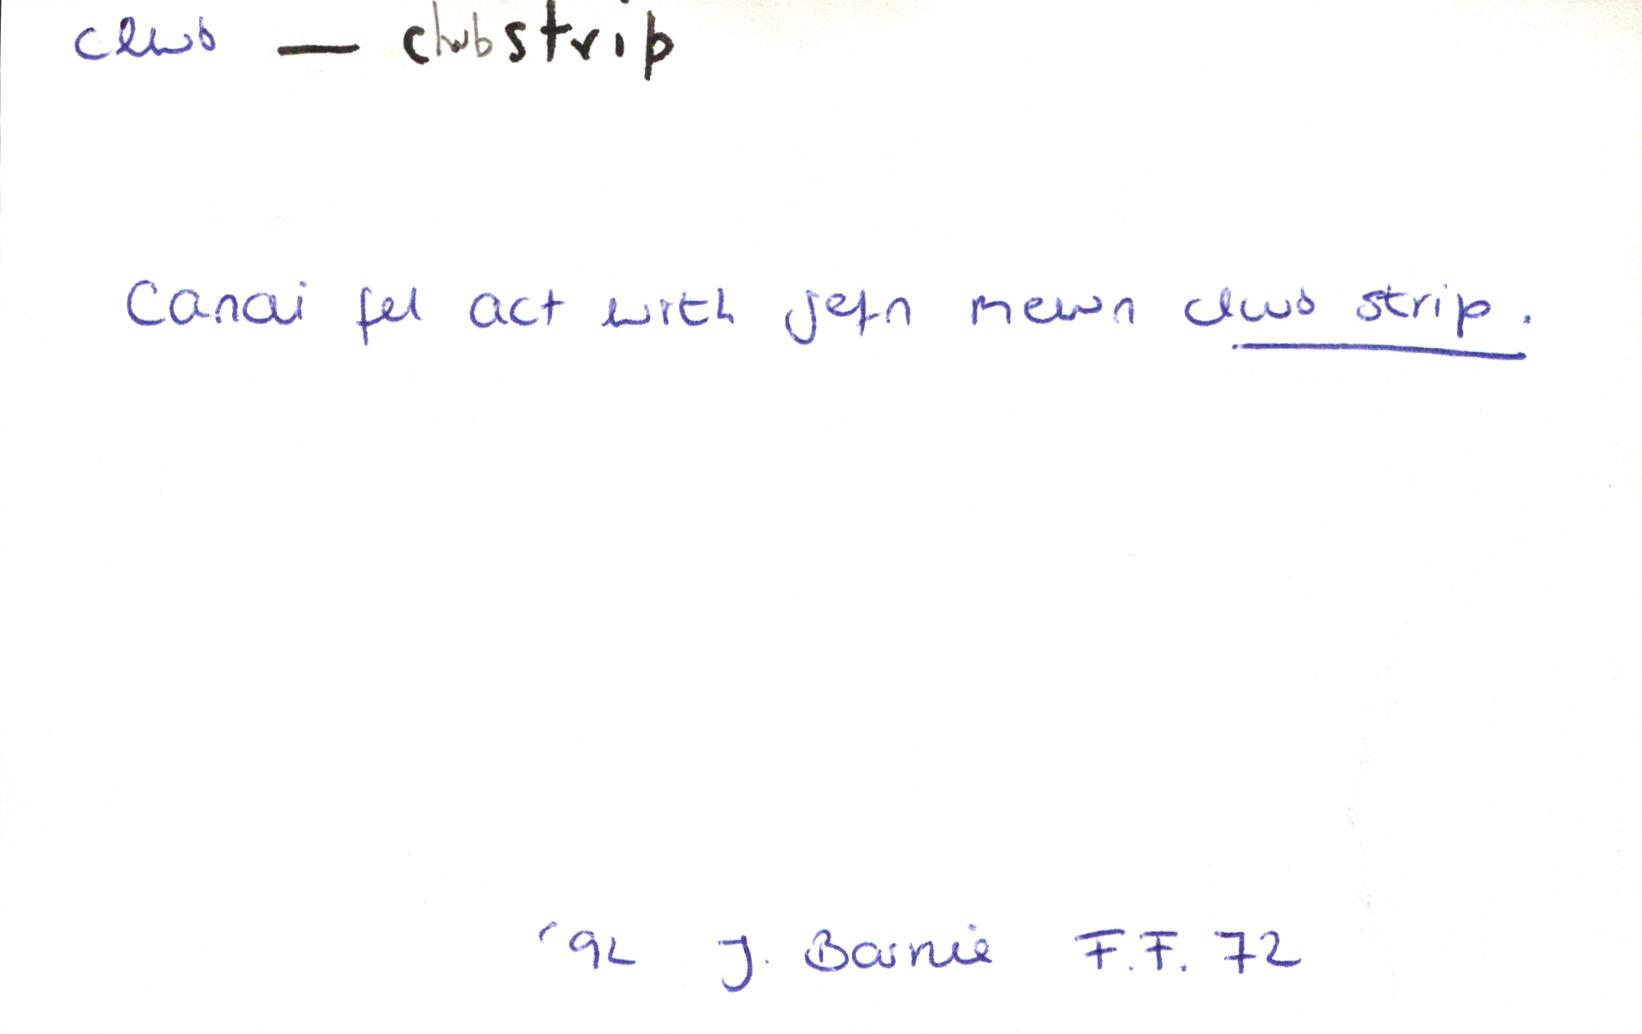 clwb — clwb strip
Canai fel act wrth gefn mewn clwb strip.
'92 J. Barnie F.F. 72